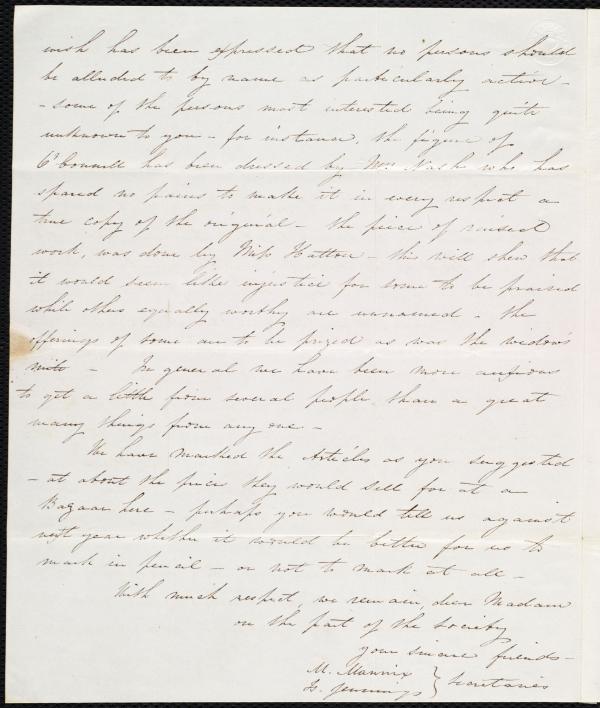 wish has been expressed that no persons should
be alluded to by name as particularly active -
- some of the persons most interested being quite
unknown to you - for instance, the figure of
O'Connell has been dressed by Mrs Nash who has
spared no pains to make it in every respect a
true copy of the original - the piece of raised
work, was done by Miss Hatton - this will shew that
it would seem like injustice for some to be praised
while others equally worthy are unnamed. The
offerings of some are to be prized as was the widow's
mite - In general we have been more anxious
to get a little from several people than a great
many things from any one -
We have marked the Articles as you suggested
- at about the prices they would sell for at a
Bazaar here - perhaps you would tell us against
next year whether it would be better for us to
mark in pencil - or not to mark at all -
With much respect, we remain, dear Madam
on the part of the society
your sincere friends -
M. Mannix
Is. Jennings } Secretaries